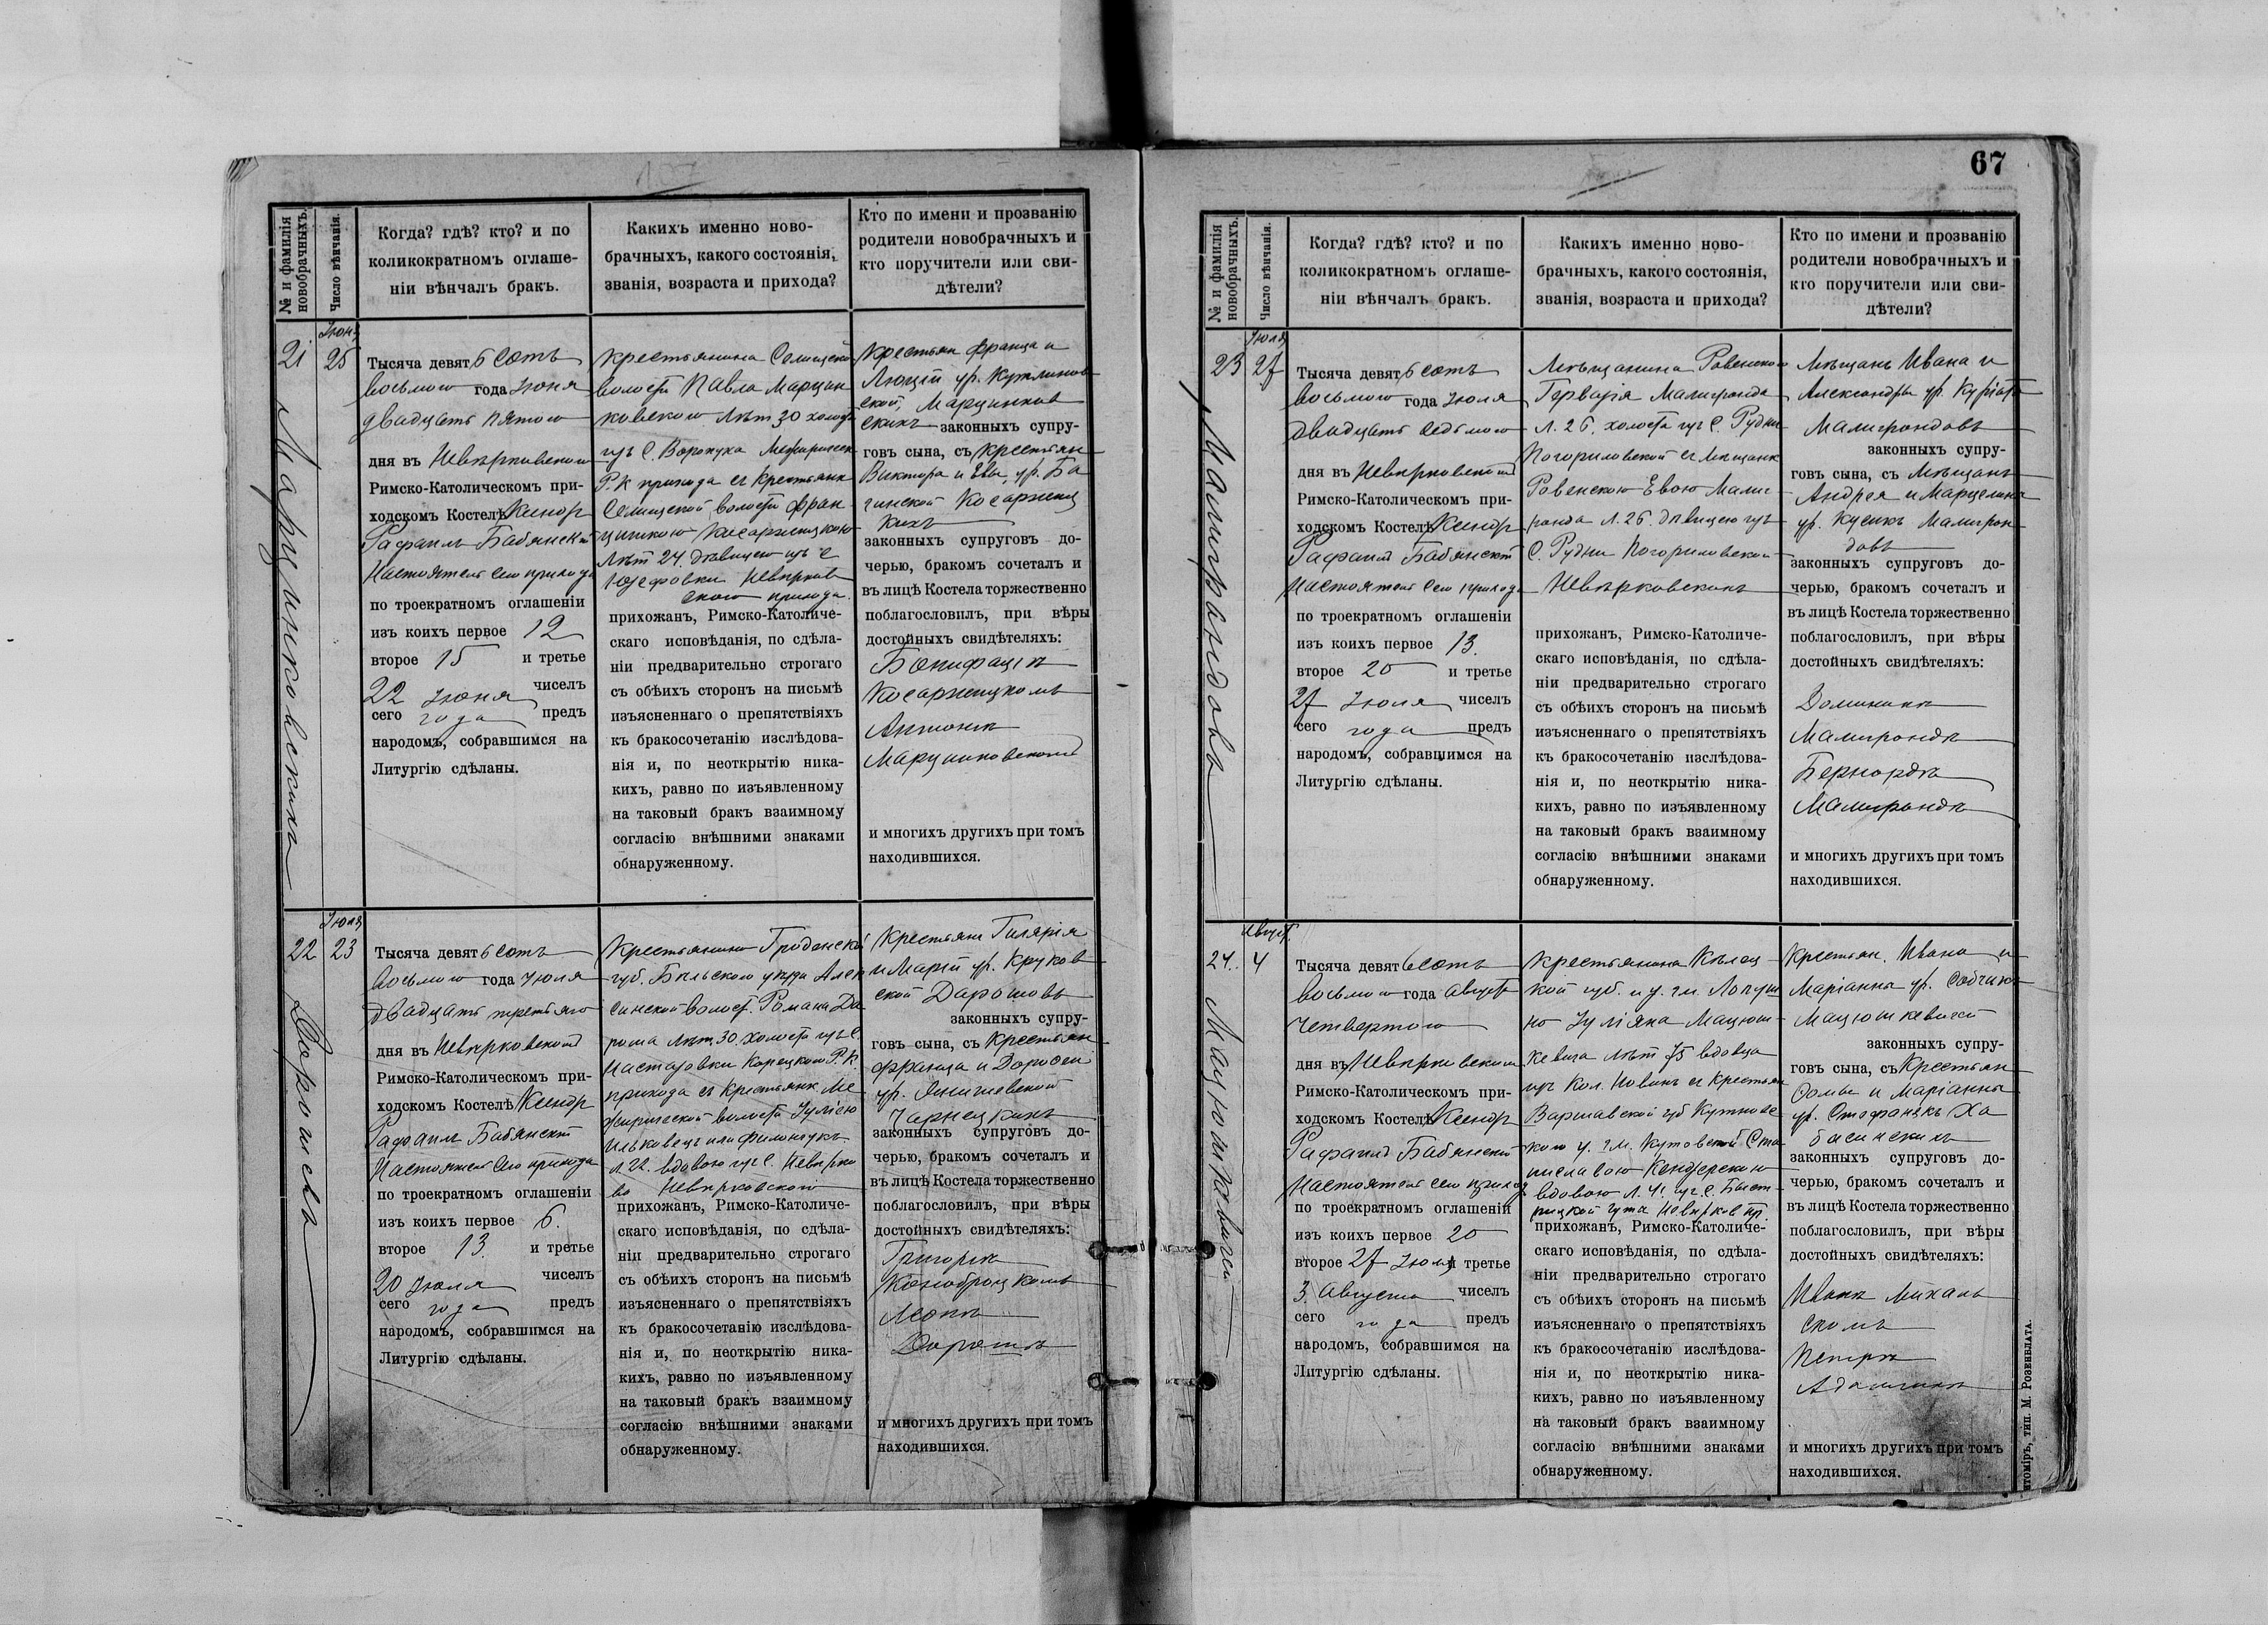 67
№ и фамилія новобрачныхъ.
Число вѣнчанія.
Когда? гдѣ? кто? и по
коликократномъ оглаше-
ніи вѣнчалъ бракъ.
Какихъ именно ново-
брачныхъ, какого состоянія,
званія, возраста и прихода?
Кто по имени и прозванію
родители новобрачныхъ и
кто поручители или сви-
дѣтели?
21
Марцинковскихъ
Іюня
25
Тысяча девятьсотъ
восьмого года Іюня
двадцать пятого
дня въ Невѣрковскомъ
Римско-Католическомъ при-
ходскомъ Костелѣ Ксендз
Рафаилъ Бабянскій
Настоятель сего прихода
по троекратномъ оглашеніи
изъ коихъ первое 12
второе 15 и третье
22 Іюня чиселъ
сего года предъ
народомъ, собравшимся на
Литургію сдѣланы.
Крестьянина
волости Павла Марцин
ковского лѣт 30 холост
изъ с. Воронуха
Р.К прихода съ крестьянк
волости Фран
цишкою Косаржицкою
лѣт 24. дѣвицею изъ с
Юзефовки Невѣрков
ского прихода.
прихожанъ, Римско-Католиче-
скаго исповѣданія, по сдѣла-
ніи предварительно строгаго
съ обѣихъ сторонъ на письмѣ
изъясненнаго о препятствіяхъ
къ бракосочетанію изслѣдова-
нія и, по неоткрытію ника-
кихъ, равно по изъявленному
на таковый бракъ взаимному
согласію внѣшними знаками
обнаруженному.
Крестьян Франца и
Люціи ур.
ской, Марцинков
скихъ законныхъ супру-
говъ сына, съ Крестьян
Виктора и Евы, ур. Ба
гинской Косаржиц
кихъ
законныхъ супруговъ до-
черью, бракомъ сочеталъ и
въ лицѣ Костела торжественно
поблагословилъ, при вѣры
достойныхъ свидѣтеляхъ:
Бонифаціи
Косаржицкомъ
Антоніи
Марцинковскомъ
и многихъ другихъ при томъ
находившихся.
22
Дорошевъ
Іюля
23
Тысяча девятьсотъ
восьмого года Іюля
двадцать третьяго
дня въ Невѣрковском
Римско-Католическомъ при-
ходскомъ Костелѣ Ксендз
Рафаилъ Бабянскій
Настоятель сего прихода
по троекратномъ оглашеніи
изъ коихъ первое 6.
второе 13. и третье
20 Іюля чиселъ
сего года предъ
народомъ, собравшимся на
Литургію сдѣланы.
Крестьянина Гроденской
губ. Бѣльского уѣзда Алек
синской волост. Романа До
роша лѣт. 30. холост изъ с.
Настаровки Корецкого Р. К.
прихода съ крестьянк. Ме
жиричской волости Іуліею
или Филончукъ
л. 22. вдовою изъ с. Невѣрко
во Невѣрковской
прихожанъ, Римско-Католиче-
скаго исповѣданія, по сдѣла-
ніи предварительно строгаго
съ обѣихъ сторонъ на письмѣ
изъясненнаго о препятствіяхъ
къ бракосочетанію изслѣдова-
нія и, по неоткрытію ника-
кихъ, равно по изъявленному
на таковый бракъ взаимному
согласію внѣшними знаками
обнаруженному.
Крестьян Гилярія
и Маріи ур. Круков
ской Дорошовъ
законныхъ супру-
говъ сына, съ Крестьян
Франца и Доротеи
ур.
Чарнецкихъ
законныхъ супруговъ до-
черью, бракомъ сочеталъ и
въ лицѣ Костела торжественно
поблагословилъ, при вѣры
достойныхъ свидѣтеляхъ:
Григоріи
Конобродскомъ
Леонѣ
Дорошъ
и многихъ другихъ при томъ
находившихся.
№ и фамилія новобрачныхъ.
Число вѣнчанія.
Когда? гдѣ? кто? и по
коликократномъ оглаше-
ніи вѣнчалъ бракъ.
Какихъ именно ново-
брачныхъ, какого состоянія,
званія, возраста и прихода?
Кто по имени и прозванію
родители новобрачныхъ и
кто поручители или сви-
дѣтели?
23
Малиграндовъ
Іюля
27
Тысяча девятьсотъ
восьмого года Іюля
двадцать седьмого
дня въ Невѣрковской
Римско-Католическомъ при-
ходскомъ Костелѣ Ксендз
Рафаилъ Бабянскій
Настоятель сего прихода
по троекратномъ оглашеніи
изъ коихъ первое 13.
второе 20 и третье
27 Іюля чиселъ
сего года предъ
народомъ, собравшимся на
Литургію сдѣланы.
Мѣщанина Ровенского
Гервазія Малигранда
л. 26. холоста изъ с. Рудни
Погориловской съ мѣщанк
Ровенскою Евою Малиг
ранда л. 26. дѣвицею изъ
с. Рудни Погориловской
Невѣрковскихъ
прихожанъ, Римско-Католиче-
скаго исповѣданія, по сдѣла-
ніи предварительно строгаго
съ обѣихъ сторонъ на письмѣ
изъясненнаго о препятствіяхъ
къ бракосочетанію изслѣдова-
нія и, по неоткрытію ника-
кихъ, равно по изъявленному
на таковый бракъ взаимному
согласію внѣшними знаками
обнаруженному.
Мѣщанъ Ивана и
Александры ур.
Малиграндовъ
законныхъ супру-
говъ сына, съ Мѣщанъ
Андрея и Марцелины
ур. Кусикъ Малигран
довъ
законныхъ супруговъ до-
черью, бракомъ сочеталъ и
въ лицѣ Костела торжественно
поблагословилъ, при вѣры
достойныхъ свидѣтеляхъ:
Доминикѣ
Малигрондѣ
Бернардѣ
Малигрондѣ
и многихъ другихъ при томъ
находившихся.
24.
Мацюшкевичей
Август.
4
Тысяча девятьсотъ
восьмого года Август
четвертого
дня въ Невѣрковском
Римско-Католическомъ при-
ходскомъ Костелѣ Ксендз
Рафаилъ Бабянскій
Настоятель сего приход
по троекратномъ оглашеніи
изъ коихъ первое 20
второе 27 Іюля и третье
3. Августа чиселъ
сего года предъ
народомъ, собравшимся на
Литургію сдѣланы.
Крестьянина Кѣлец
кой губ. и у. гм. Лопуш
но Іуліяна Мацюш-
кевича лѣт 75 вдовца
изъ Кол. Новинъ съ крестьян
Варшавской губ Кутновс
кого у. гм. Кутовской Ста
ниславою Кендзерскою
вдовою л. 41. изъ с. Быст-
рицкой гута Невѣрков пр
прихожанъ, Римско-Католиче-
скаго исповѣданія, по сдѣла-
ніи предварительно строгаго
съ обѣихъ сторонъ на письмѣ
изъясненнаго о препятствіяхъ
къ бракосочетанію изслѣдова-
нія и, по неоткрытію ника-
кихъ, равно по изъявленному
на таковый бракъ взаимному
согласію внѣшними знаками
обнаруженному.
Крестьян. Ивана и
Маріанны ур. Собчикъ
Мацюшкевичей
законныхъ супру-
говъ сына, съ Крестьян
Фомы и Маріанны
ур. Стефанякъ Ха
басинскихъ
законныхъ супруговъ до-
черью, бракомъ сочеталъ и
въ лицѣ Костела торжественно
поблагословилъ, при вѣры
достойныхъ свидѣтеляхъ:
Иванѣ Михаль
скомъ
Петрѣ
Адамчикѣ
и многихъ другихъ при томъ
находившихся.
итоміръ, тип. М. Розенблата.